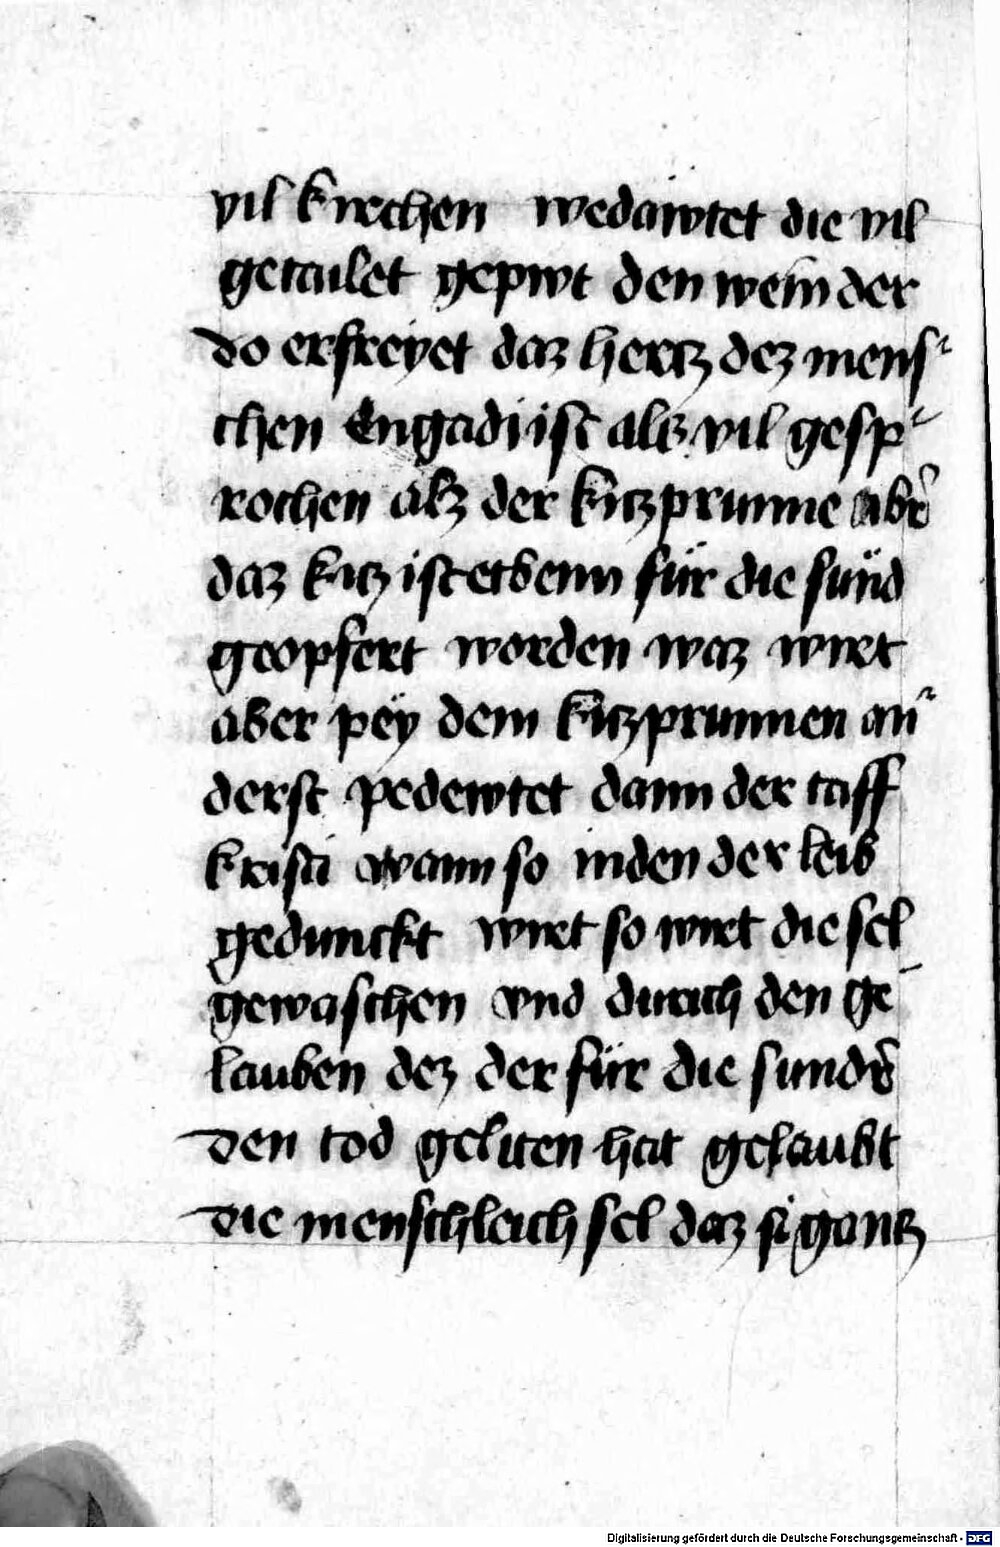 vil kirchen wedäwtet die vil
getailet gepirt den wein der
do erfreyet daz hertz dez mens-
chen Engadi ist alz vil gesp-
rochen alz der kitzprunne aber
daz kitz ist etbenn für die sünd
geopfert worden waz wirt
aber pëy dem kitzprunnen an-
derst pedewtet dann der taff
kristi wann so in den der leib
gedunckt wirt so wirt die sel
gewaschen vnd durich den ge-
lauben dez der für die sunder
den tod geliten hat gelaubt
die menschleich sel daz si gantz
Digitalisierung gefördert durch die Deutsche Forschungsgemeinschaft - DFG